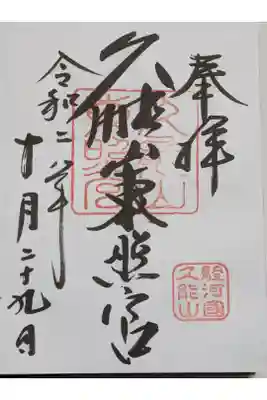 奉拝
久能山東照宮
駿河國
久能山
令和二年
十月二十九日